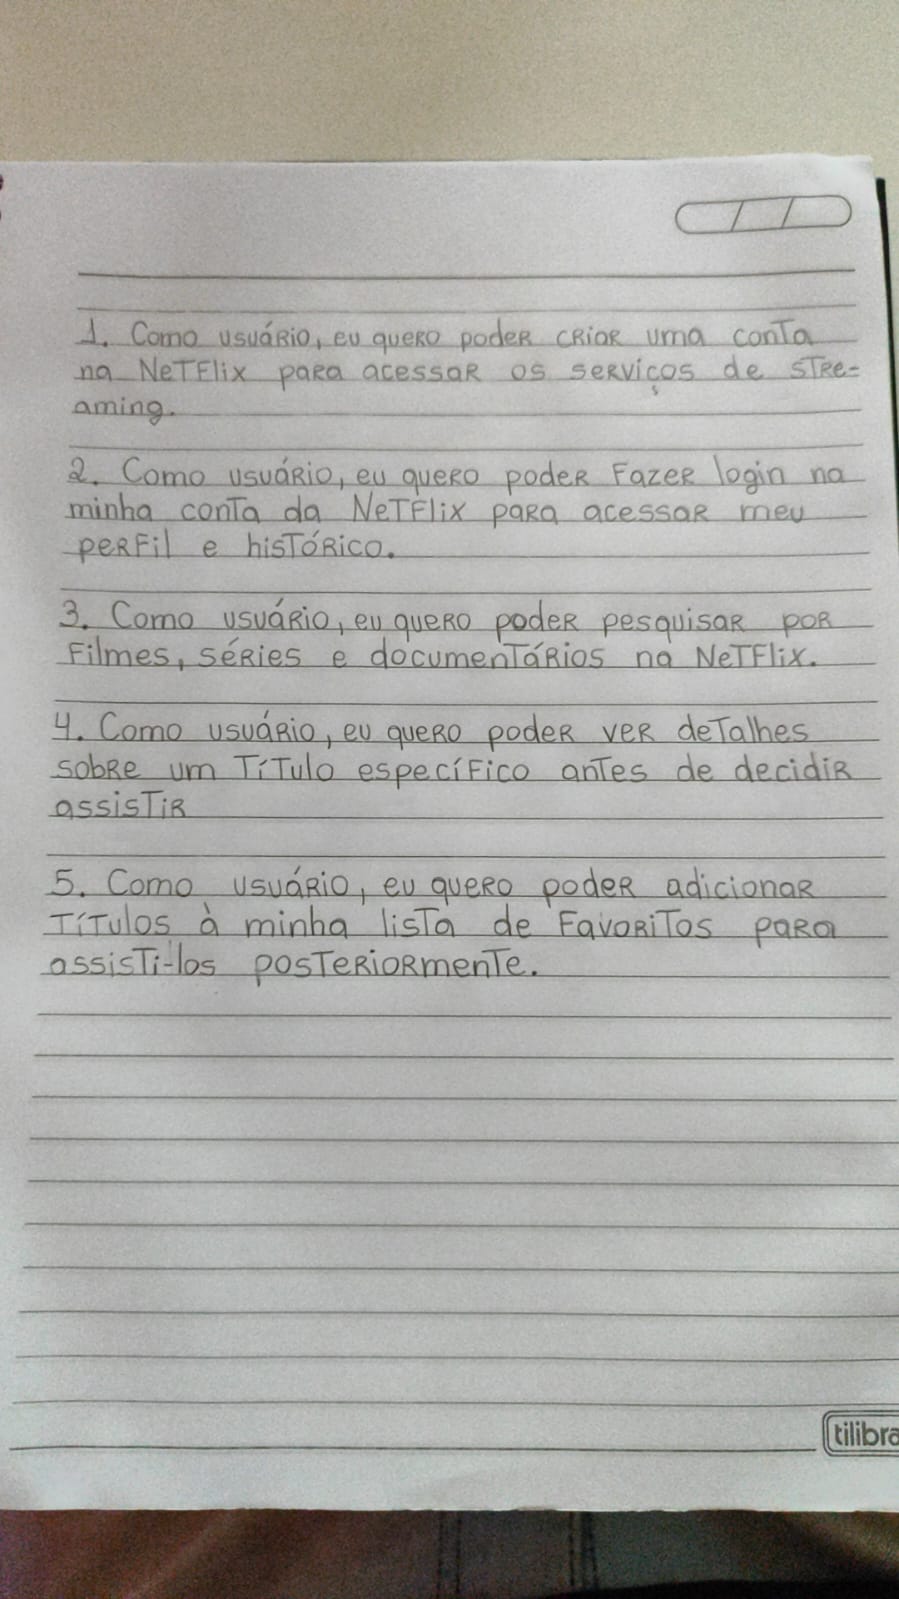 1. Como usuário, eu quero poder criar uma conta
na Netflix para acessar os serviços de stre-
aming.
2. Como usuário, eu quero poder fazer login na
minha conta da Netflix para acessar meu
perfil e histórico.
3. Como usuário, eu quero poder pesquisar por
filmes, séries e documentários na Netflix.
4. Como usuário, eu quero poder ver detalhes
sobre um título específico antes de decidir
assistir
5. Como usuário, eu quero poder adicionar
títulos à minha lista de favoritos para
assisti-los posteriormente.
tilibra